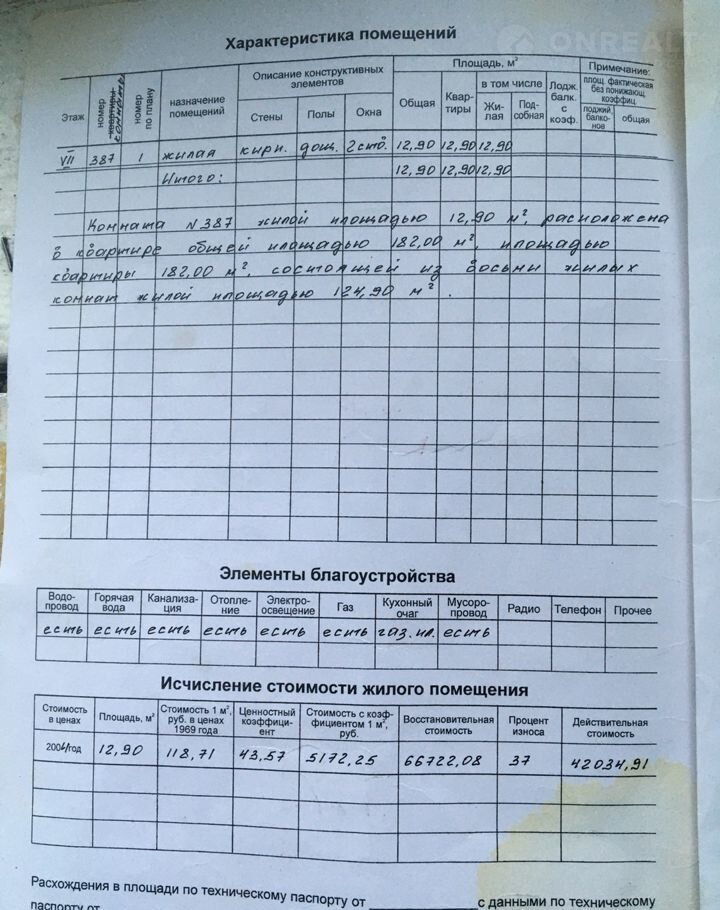 ONREALT
Характеристика помещений
Этаж номер квартиры комнаты номер по плану назначение помещений Описание конструктивных элементов Стены Полы Окна Площадь, м² Общая Квар-тиры в том числе Жи-лая Под-собная Лодж. балк. с коэф. Примечание: площ. фактическая без понижающ. коэффиц. лоджий, балко-нов общая
VII 387 1 жилая кирп. дощ. 2 ств. 12,90 12,90 12,90
Итого: 12,90 12,90 12,90
Комната N 387 жилой площадью 12,90 м², расположена
в квартире общей площадью 182,00 м², площадью
квартиры 182,00 м², состоящей из восьми жилых
комнат жилой площадью 124,90 м².
Элементы благоустройства
Водо-провод Горячая вода Канализа-ция Отопле-ние Электро-освещение Газ Кухонный очаг Мусоро-провод Радио Телефон Прочее
есть есть есть есть есть есть газ. пл. есть
Исчисление стоимости жилого помещения
Стоимость в ценах Площадь, м² Стоимость 1 м², руб. в ценах 1969 года Ценностный коэффици-ент Стоимость с коэф-фициентом 1 м², руб. Восстановительная стоимость Процент износа Действительная стоимость
2004 год 12,90 118,71 43,57 5172,25 66722,08 37 42034,91
Расхождения в площади по техническому паспорту от с данными по техническому
паспорту от